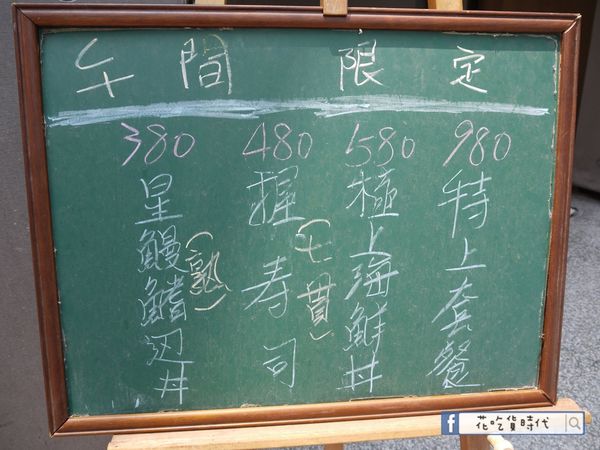 午間限定
380
星鰻鰭辺丼
(熟)
480
握寿司
(七貫)
580
極上海鮮丼
980
特上套餐
f 花吃貨時代